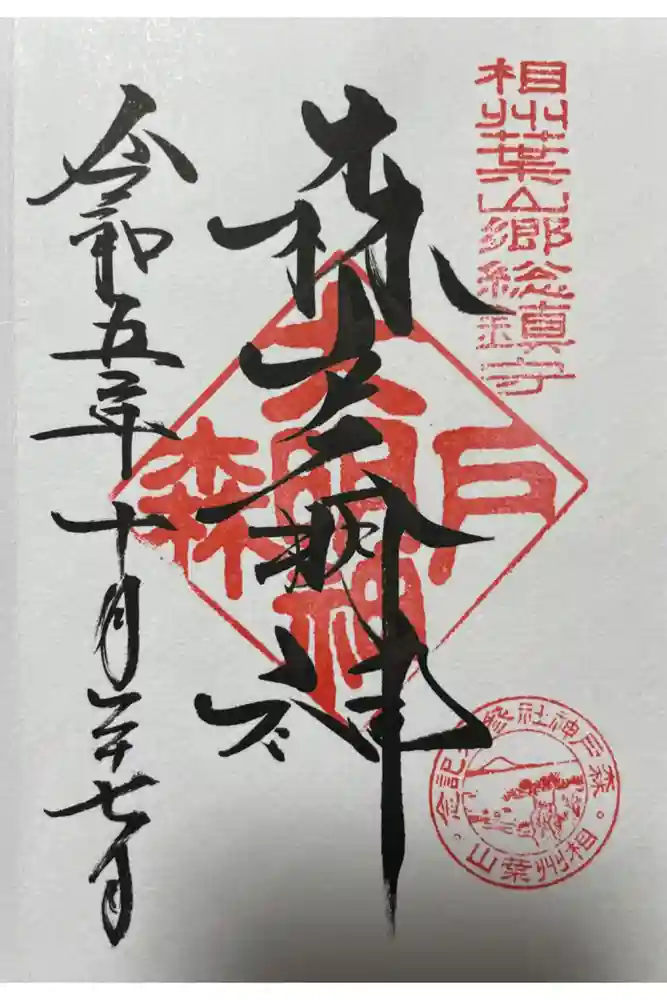 相州葉山郷総鎮守
森戸大明神
森戸大明神
令和五年十月二十七日
森戸神社
記念
相州葉山